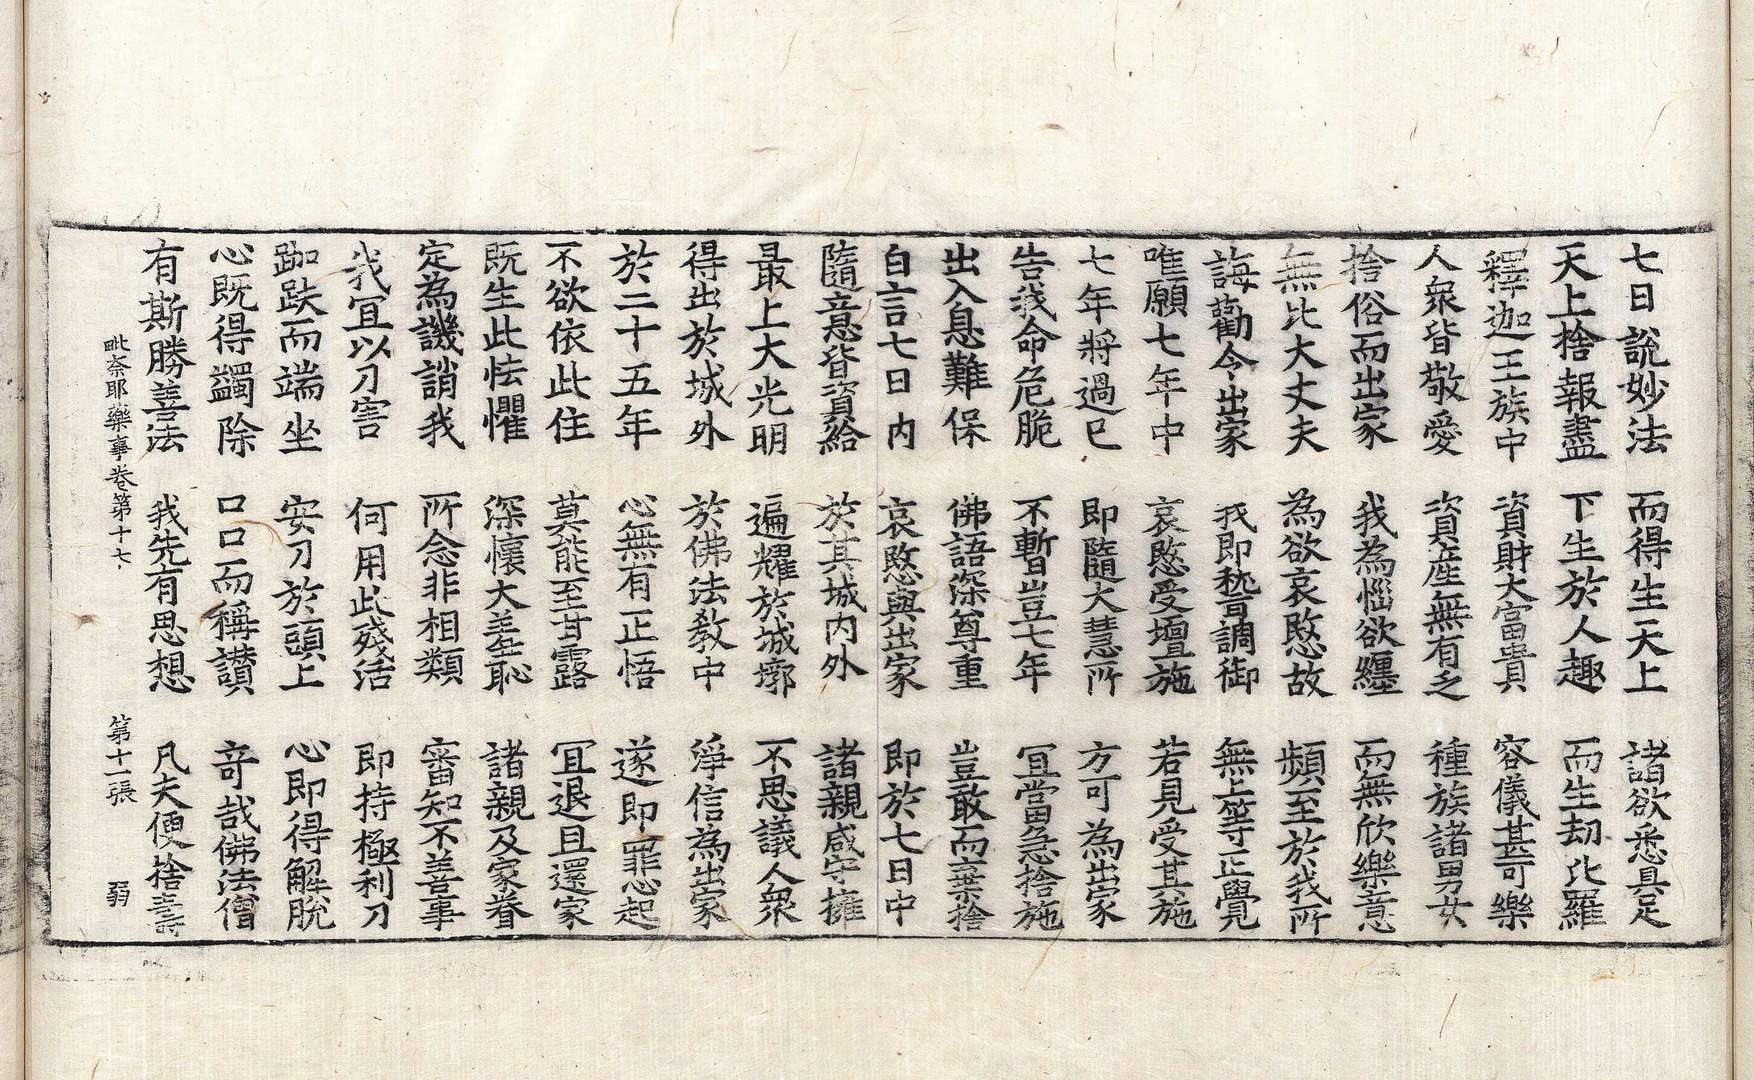 七日說妙法　而得生天上　諸欲悉具足
天上捨報盡　下生於人趣　而生劫比羅
釋迦王族中　資財大富貴　容儀甚可樂
人衆皆敬愛　資産無有乏　種族諸男女
捨俗而出家　我為惱欲纏　而無欣樂意
無比大丈夫　為欲哀愍故　頻至於我所
誨勸令出家　我即稽首調御　無上等正覺
唯願七年中　哀愍受壇施　若見受其施
七年將過已　即隨大慧所　方可為出家
告我命危脆　不暫豈七年　冝當急捨施
出入息難保　佛語深尊重　豈敢而棄捨
白言七日内　哀愍與出家　即於七日中
隨意皆資給　於其城内外　諸親咸守擁
最上大光明　遍耀於城廓　不思議人衆
得出於城外　於佛法教中　淨信為出家
於二十五年　心無有正悟　遂即罪惡起
不欲依此住　莫能至甘露　冝退且還家
既生此怯懼　深懷大羞恥　諸親及家眷
定為譏誚我　所念非相類　審知不善事
我冝以刀害　何用此殘活　即持極利刀
跏趺而端坐　安刀於頭上　心即得解脫
心既得蠲除　口口而稱讃　竒哉佛法僧
有斯勝善法　我先有思想　凡夫便捨壽
毗奈耶藥事卷第十七　第十一張　弱